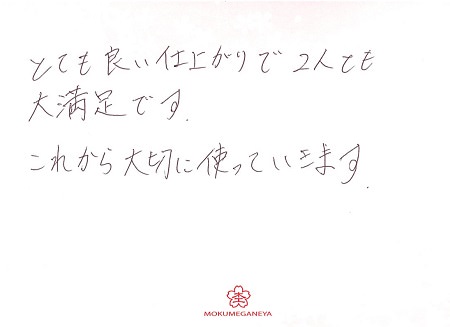 とても良い仕上がりで2人とも
大満足です.
これから大切に使っていきます.
MOKUMEGANEYA